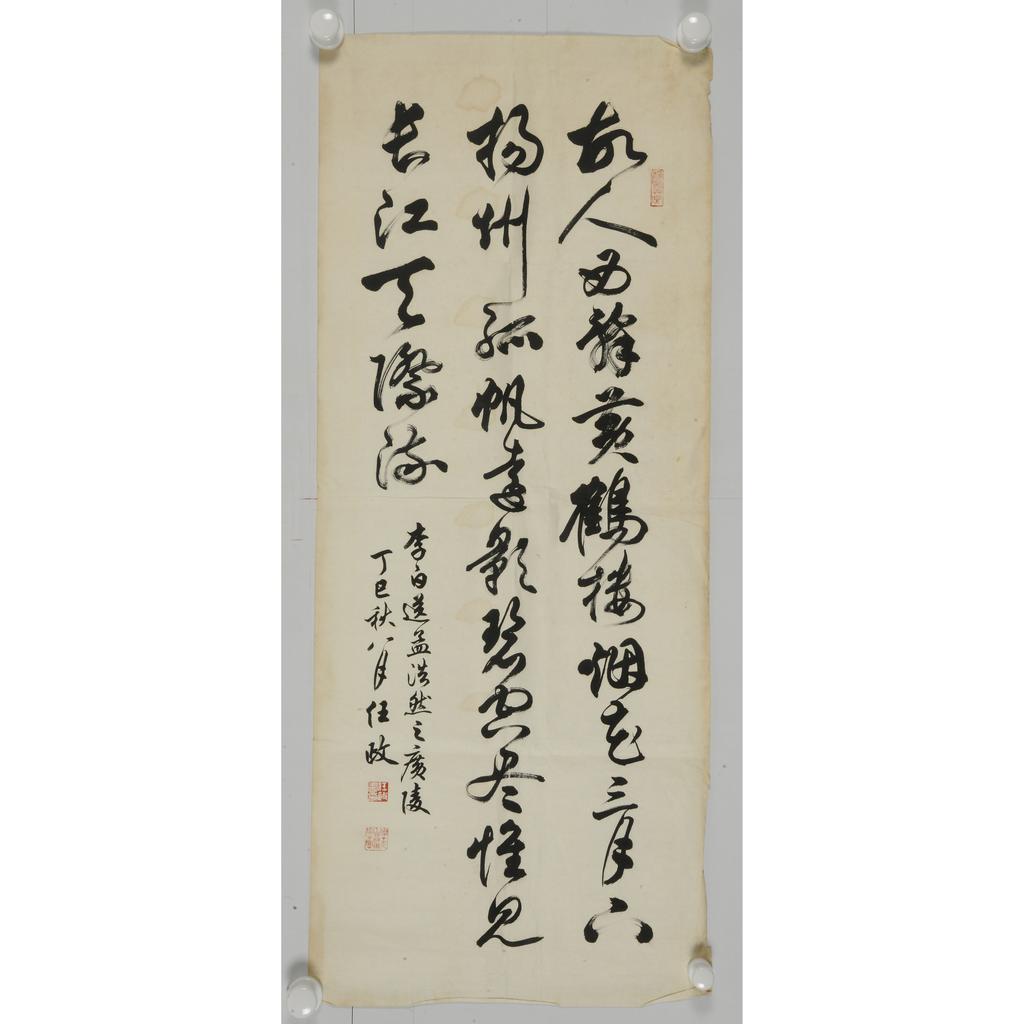 故人西辞黄鶴楼烟花三月下
揚州孤帆遠影碧空尽惟見
长江天際流
李白送孟浩然之廣陵
丁巳秋八月任政